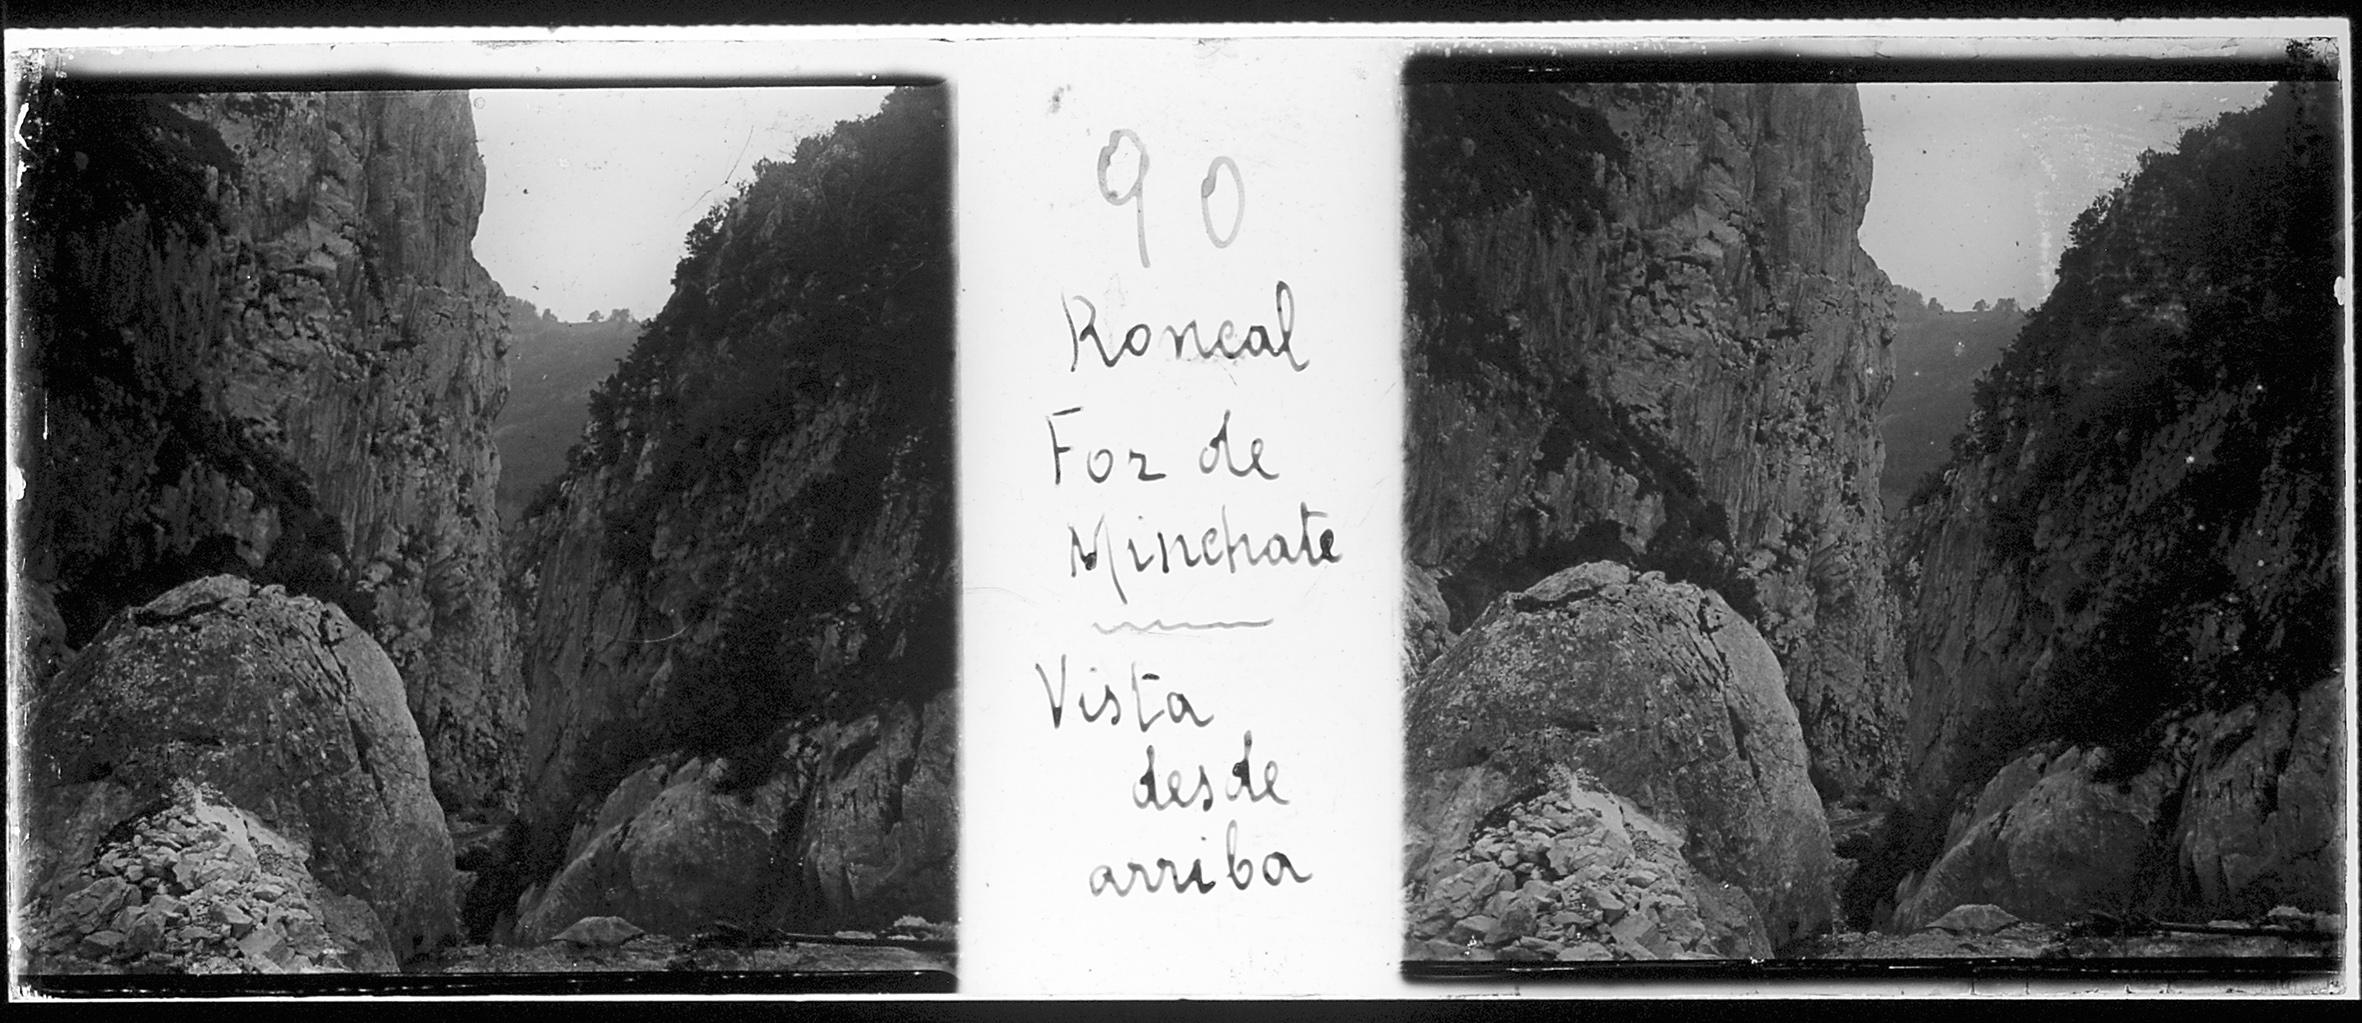 90
Roncal
Foz de
Minchate
Vista
desde
arriba